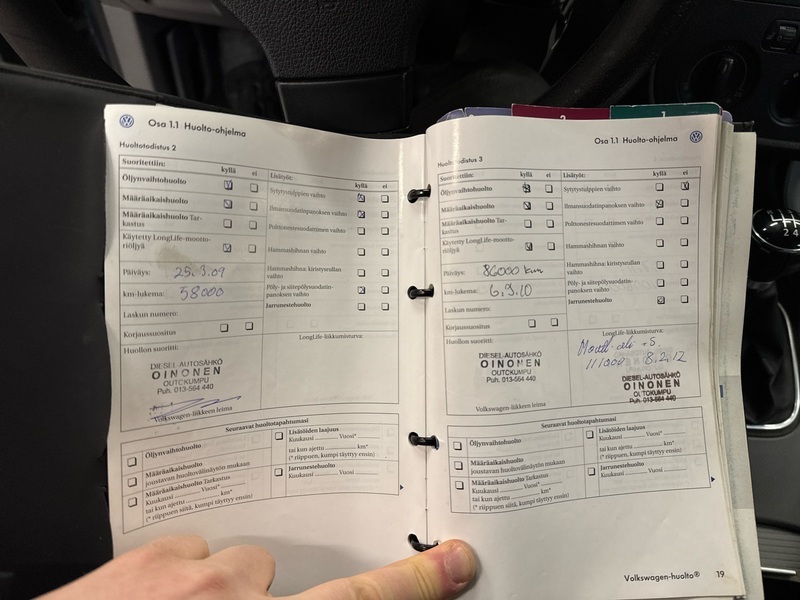 Osa 1.1 Huolto-ohjelma
Huoltotodistus 2
Suoritettiin:
kyllä ei
Öljynvaihtohuolto
Määräaikaishuolto
Määräaikaishuolto Tar-
kastus
Käytetty LongLife-mootto-
riöljyä
Päiväys: 25.3.09
km-lukema: 58000
Laskun numero:
Korjaussuositus
Huollon suoritti:
DIESEL-AUTOSÄHKÖ
OINONEN
OUTOKUMPU
Puh. 013-564 440
Volkswagen-liikkeen leima
Lisätyöt:
kyllä ei
Sytytystulppien vaihto
Ilmansuodatinpanoksen vaihto
Polttonestesuodattimen vaihto
Hammashihnan vaihto
Hammashihna: kiristysrullan
vaihto
Pöly- ja siitepölysuodatin-
panoksen vaihto
Jarrunestehuolto
LongLife-liikkumisturva:
Seuraavat huoltotapahtumasi
Öljynvaihtohuolto
Määräaikaishuolto
joustavan huoltovälinäytön mukaan
Määräaikaishuolto Tarkastus
Kuukausi Vuosi*
tai kun ajettu km*
(* riippuen siitä, kumpi täyttyy ensin)
Lisätöiden laajuus
Kuukausi Vuosi*
tai kun ajettu km*
(* riippuen, kumpi täyttyy ensin)
Jarrunestehuolto
Kuukausi Vuosi
2
1
Osa 1.1 Huolto-ohjelma
Huoltotodistus 3
Suoritettiin:
kyllä ei
Öljynvaihtohuolto
Määräaikaishuolto
Määräaikaishuolto Tar-
kastus
Käytetty LongLife-mootto-
riöljyä
Päiväys: 86000 km
km-lukema: 6.9.10
Laskun numero:
Korjaussuositus
Huollon suoritti:
DIESEL-AUTOSÄHKÖ
OINONEN
OUTOKUMPU
Puh. 013-564 440
Volkswagen-liikkeen leima
Lisätyöt:
kyllä ei
Sytytystulppien vaihto
Ilmansuodatinpanoksen vaihto
Polttonestesuodattimen vaihto
Hammashihnan vaihto
Hammashihna: kiristysrullan
vaihto
Pöly- ja siitepölysuodatin-
panoksen vaihto
Jarrunestehuolto
LongLife-liikkumisturva:
111000 8.2.12
DIESEL-AUTOSÄHKÖ
OINONEN
OUTOKUMPU
Puh. 013-564 440
Seuraavat huoltotapahtumasi
Öljynvaihtohuolto
Määräaikaishuolto
joustavan huoltovälinäytön mukaan
Määräaikaishuolto Tarkastus
Kuukausi Vuosi*
tai kun ajettu km*
(* riippuen siitä, kumpi täyttyy ensin)
Lisätöiden laajuus
Kuukausi Vuosi*
tai kun ajettu km*
(* riippuen, kumpi täyttyy ensin)
Jarrunestehuolto
Kuukausi Vuosi
Volkswagen-huolto® 19
2 4